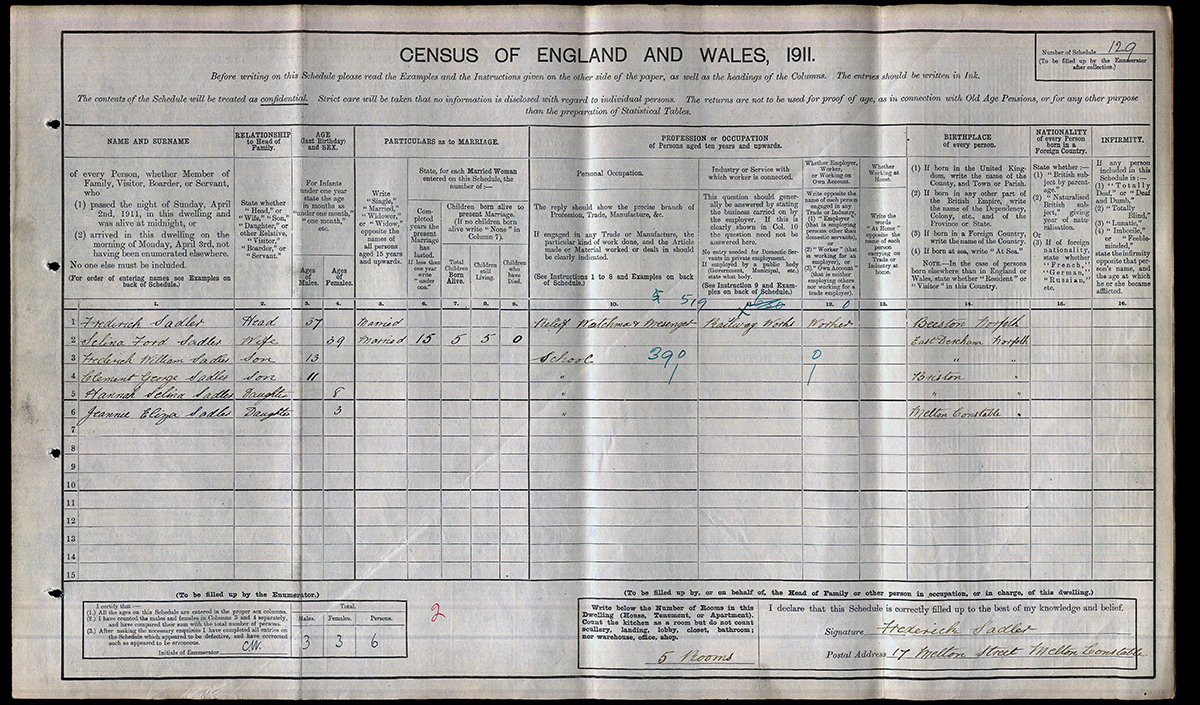 CENSUS OF ENGLAND AND WALES, 1911.
Number of Schedule 129
(To be filled up by the Enumerator after collection.)
Before writing on this Schedule please read the Examples and the Instructions given on the other side of the paper, as well as the headings of the Columns. The entries should be written in Ink.
The contents of the Schedule will be treated as confidential. Strict care will be taken that no information is disclosed with regard to individual persons. The returns are not to be used for proof of age, as in connection with Old Age Pensions, or for any other purpose
than the preparation of Statistical Tables.
NAME AND SURNAME
of every Person, whether Member of Family, Visitor, Boarder, or Servant, who
(1) passed the night of Sunday, April 2nd, 1911, in this dwelling and was alive at midnight, or
(2) arrived in this dwelling on the morning of Monday, April 3rd, not having been enumerated elsewhere.
No one else must be included.
(For order of entering names see Examples on back of Schedule.)
RELATIONSHIP to Head of Family.
State whether "Head," or "Wife," "Son," "Daughter," or other Relative, "Visitor," "Boarder," or "Servant."
AGE (last Birthday) and SEX.
For Infants under one year state the age in months as "under one month," "one month," etc.
Ages of Males.
Ages of Females.
PARTICULARS as to MARRIAGE.
Write "Single," "Married," "Widower," or "Widow," opposite the names of all persons aged 15 years and upwards.
State, for each Married Woman entered on this Schedule, the number of:—
Completed years the present Marriage has lasted. If less than one year write "under one."
Children born alive to present Marriage. (If no children born alive write "None" in Column 7).
Total Children Born Alive.
Children still Living.
Children who have Died.
PROFESSION or OCCUPATION
of Persons aged ten years and upwards.
Personal Occupation.
The reply should show the precise branch of Profession, Trade, Manufacture, &c.
If engaged in any Trade or Manufacture, the particular kind of work done, and the Article made or Material worked or dealt in should be clearly indicated.
(See Instructions 1 to 8 and Examples on back of Schedule.)
Industry or Service with which worker is connected.
This question should generally be answered by stating the business carried on by the employer. If this is clearly shown in Col. 10 the question need not be answered here.
No entry needed for Domestic Servants in private employment. If employed by a public body (Government, Municipal, etc.) state what body.
(See Instruction 9 and Examples on back of Schedule.)
Whether Employer, Worker, or Working on Own Account.
Write opposite the name of each person engaged in any Trade or Industry, (1) "Employer" (that is employing persons other than domestic servants), or (2) "Worker" (that is working for an employer), or (3) "Own Account" (that is neither employing others nor working for a trade employer).
Whether Working at Home.
Write the words "At Home" opposite the name of each person carrying on Trade or Industry at home.
BIRTHPLACE of every person.
(1) If born in the United Kingdom, write the name of the County, and Town or Parish.
(2) If born in any other part of the British Empire, write the name of the Dependency, Colony, etc., and of the Province or State.
(3) If born in a Foreign Country, write the name of the Country.
(4) If born at sea, write "At Sea."
NOTE.—In the case of persons born elsewhere than in England or Wales, state whether "Resident" or "Visitor" in this Country.
NATIONALITY of every Person born in a Foreign Country.
State whether:—
(1) "British subject by parentage."
(2) "Naturalised British subject," giving year of naturalisation.
(3) If of foreign nationality, state whether "French," "German," "Russian," etc.
INFIRMITY.
If any person included in this Schedule is:—
(1) "Totally Deaf," or "Deaf and Dumb,"
(2) "Totally Blind,"
(3) "Lunatic,"
(4) "Imbecile," or "Feeble-minded,"
state the infirmity opposite that person's name, and the age at which he or she became afflicted.
1. 2. 3. 4. 5. 6. 7. 8. 9. 10. 11. 12. 13. 14. 15. 16.
519
1 Frederick Sadler Head 37 Married Relief Watchma & Mesenger Railway Works Worker Beeston Norfolk
2 Selina Ford Sadler Wife 39 Married 15 5 5 0 East Dereham Norfolk
3 Frederick William Sadler Son 13 School 390 0 " "
4 Clement George Sadler Son 11 " 1 1 Briston "
5 Hannah Selina Sadler Daughter 8 " " "
6 Jeannie Eliza Sadler Daughter 3 " Melton Constable "
7
8
9
10
11
12
13
14
15
(To be filled up by the Enumerator.)
I certify that:—
(1.) All the ages on this Schedule are entered in the proper sex columns.
(2.) I have counted the males and females in Columns 3 and 4 separately, and have compared their sum with the total number of persons.
(3.) After making the necessary enquiries I have completed all entries on the Schedule which appeared to be defective, and have corrected such as appeared to be erroneous.
Initials of Enumerator C.W.
Total.
Males. Females. Persons.
3 3 6
2
(To be filled up by, or on behalf of, the Head of Family or other person in occupation, or in charge, of this dwelling.)
Write below the Number of Rooms in this Dwelling (House, Tenement, or Apartment). Count the kitchen as a room but do not count scullery, landing, lobby, closet, bathroom; nor warehouse, office, shop.
5 Rooms
I declare that this Schedule is correctly filled up to the best of my knowledge and belief.
Signature Frederick Sadler
Postal Address 17 Melton Street Melton Constable